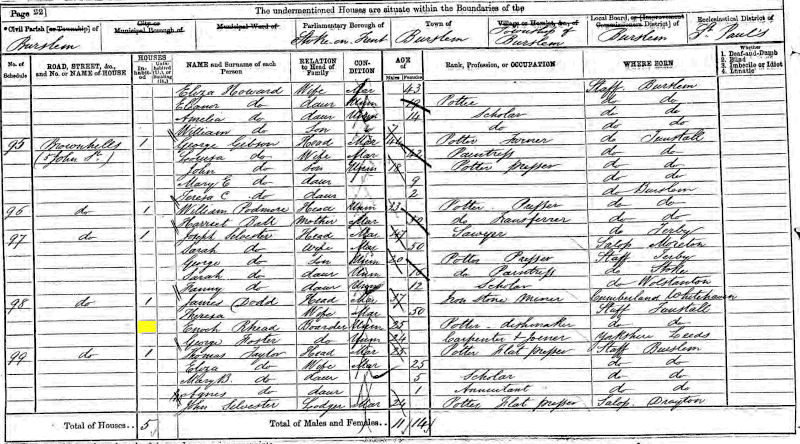 Page 22]
The undermentioned Houses are situate within the Boundaries of the
Civil Parish [or Township] of
Burslem
City or Municipal Borough of
Municipal Ward of
Parliamentary Borough of
Stoke on Trent
Town of
Burslem
Village or Hamlet, &c., of
Township of Burslem
Local Board, or [Improvement Commissioners District] of
Burslem
Ecclesiastical District of
St. Paul's
No. of Schedule
ROAD, STREET, &c., and No. or NAME of HOUSE
HOUSES
Inhabited
Uninhabited (U.), or Building (B.)
NAME and Surname of each Person
RELATION to Head of Family
CONDITION
AGE of
Males
Females
Rank, Profession, or OCCUPATION
WHERE BORN
Whether
1. Deaf-and-Dumb
2. Blind
3. Imbecile or Idiot
4. Lunatic
Eliza Howard Wife Mar 43 Staff. Burslem
Eleanor do daur Unm 19 Potter do do
Amelia do daur Unm 14 Scholar do do
William do Son 7 do do do
95 Brownhills (5 John St.) 1 George Gibson Head Mar Potter Turner do Tunstall
do Wife Mar 42 Paintress do do
John do Son Unm 18 Potter presser do do
Mary E do daur 9 do do
Teresa C do daur 2 do Burslem
96 do 1 William Podmore Head Unm 23 Potter Presser do do
Harriet Ball Mother Mar do Transferrer do do
97 do 1 Joseph Silvester Head Mar 47 Sawyer do
Sarah do Wife Mar 50 Salop Moreton
George do Son Unm 20 Potter Presser Staff
Sarah do daur Unm do Paintress do Stoke
Fanny do daur Unm 12 Scholar do Wolstanton
98 do 1 James Dodd Head Mar 37 Iron Stone Miner Cumberland Whitehaven
Theresa do Wife Mar 50 Staff Tunstall
Enoch Rhead Boarder Unm 25 Potter - dishmaker do do
George Foster do Unm 24 Carpenter & Joiner Yorkshire Leeds
99 do 1 Thomas Taylor Head Mar 25 Potter Flat presser Staff Burslem
Eliza do Wife Mar 25 do do
Mary B. do daur 5 Scholar do do
Agnes do daur 1 do do
John Silvester Lodger Mar 24 Potter Flat presser Salop Drayton
Total of Houses.. 5
Total of Males and Females.. 11 14